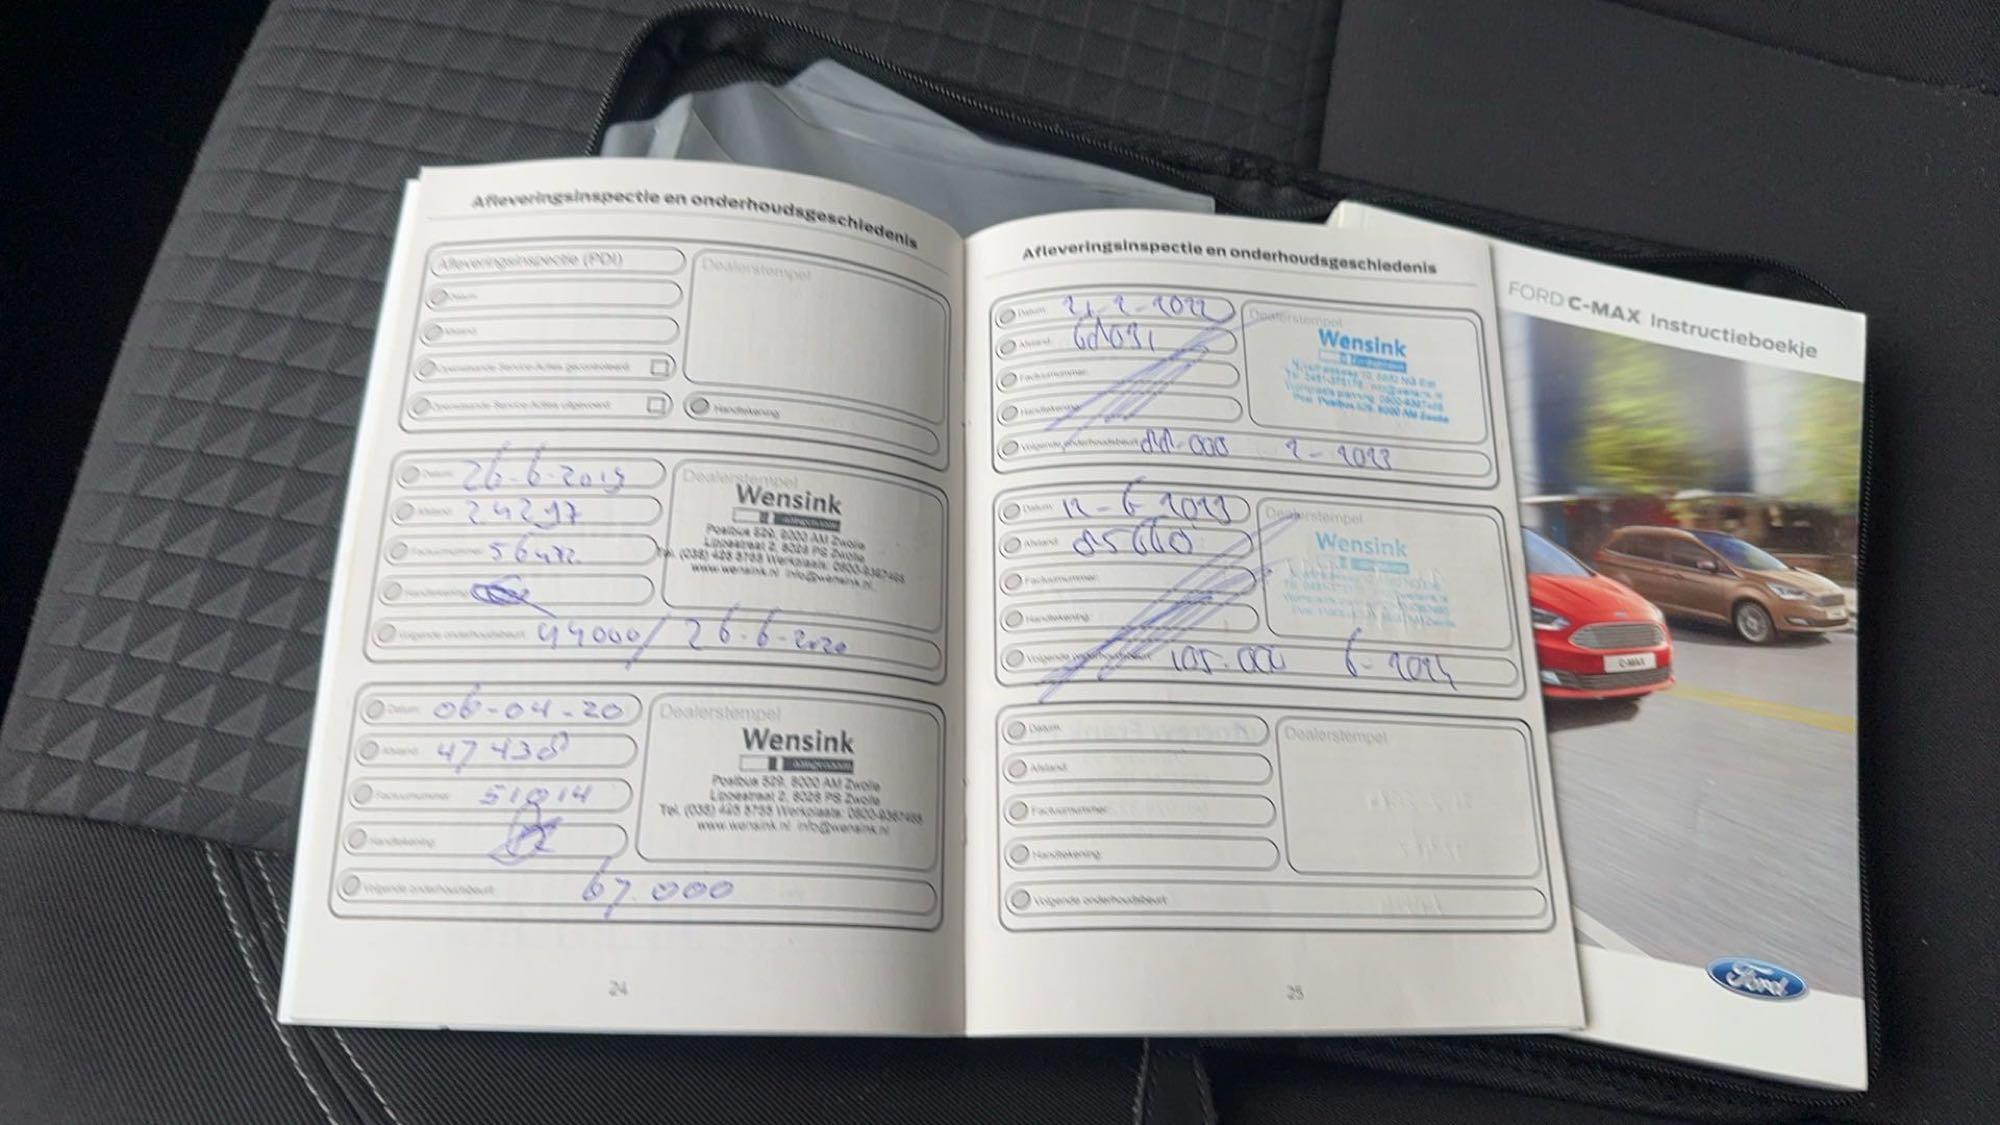 Afleveringsinspectie en onderhoudsgeschiedenis
Afleveringsinspectie (PDI)
Dealerstempel
Datum:
Afstand:
Openstaande Service-Acties gecontroleerd:
Openstaande Service-Acties uitgevoerd:
Handtekening:
Datum: 26-6-2019
Afstand: 24297
Factuurnummer: 56472
Handtekening:
Volgende onderhoudsbeurt: 44000 / 26-6-2020
Dealerstempel
Wensink
Postbus 529, 8000 AM Zwolle
Lippestraat 2, 8028 PS Zwolle
Tel. (038) 425 5755 Werkplaats: 0800-9367465
www.wensink.nl info@wensink.nl
Datum: 06-04-20
Afstand: 47438
Factuurnummer: 51014
Handtekening:
Volgende onderhoudsbeurt: 67.000
Dealerstempel
Wensink
Postbus 529, 8000 AM Zwolle
Lippestraat 2, 8028 PS Zwolle
Tel. (038) 425 5755 Werkplaats: 0800-9367465
www.wensink.nl info@wensink.nl
24
Afleveringsinspectie en onderhoudsgeschiedenis
Datum: 21-2-2022
Afstand:
Factuurnummer:
Handtekening:
Volgende onderhoudsbeurt: 88.000 2-2023
Dealerstempel
Wensink
Post: Postbus 529, 8000 AM Zwolle
Datum: 12-6-2023
Afstand:
Factuurnummer:
Handtekening:
Volgende onderhoudsbeurt: 105.000 6-2024
Dealerstempel
Wensink
Datum:
Afstand:
Factuurnummer:
Handtekening:
Volgende onderhoudsbeurt:
Dealerstempel
25
FORD C-MAX Instructieboekje
C-MAX
Ford